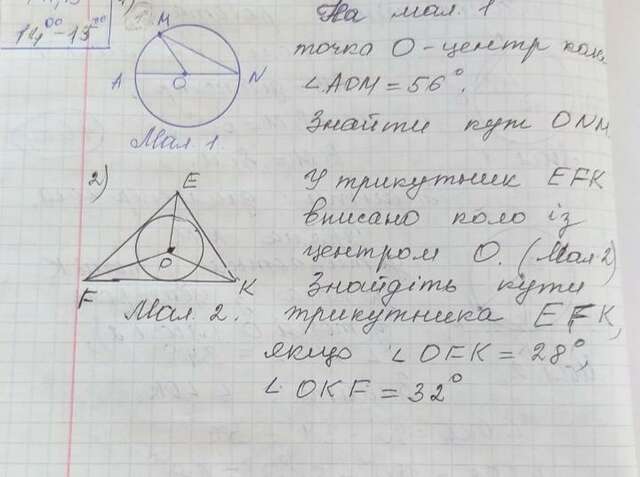 14⁰⁰ – 15²⁰
1)
M
A O N
Мал. 1.
На мал. 1
точка О - центр кола,
∠AOM = 56°.
Знайти кут ONM
2)
E
O
F K
Мал. 2.
У трикутник EFK
вписано коло із
центром О. (Мал 2)
Знайдіть кути
трикутника EFK,
якщо ∠OEK = 28°,
∠OKF = 32°